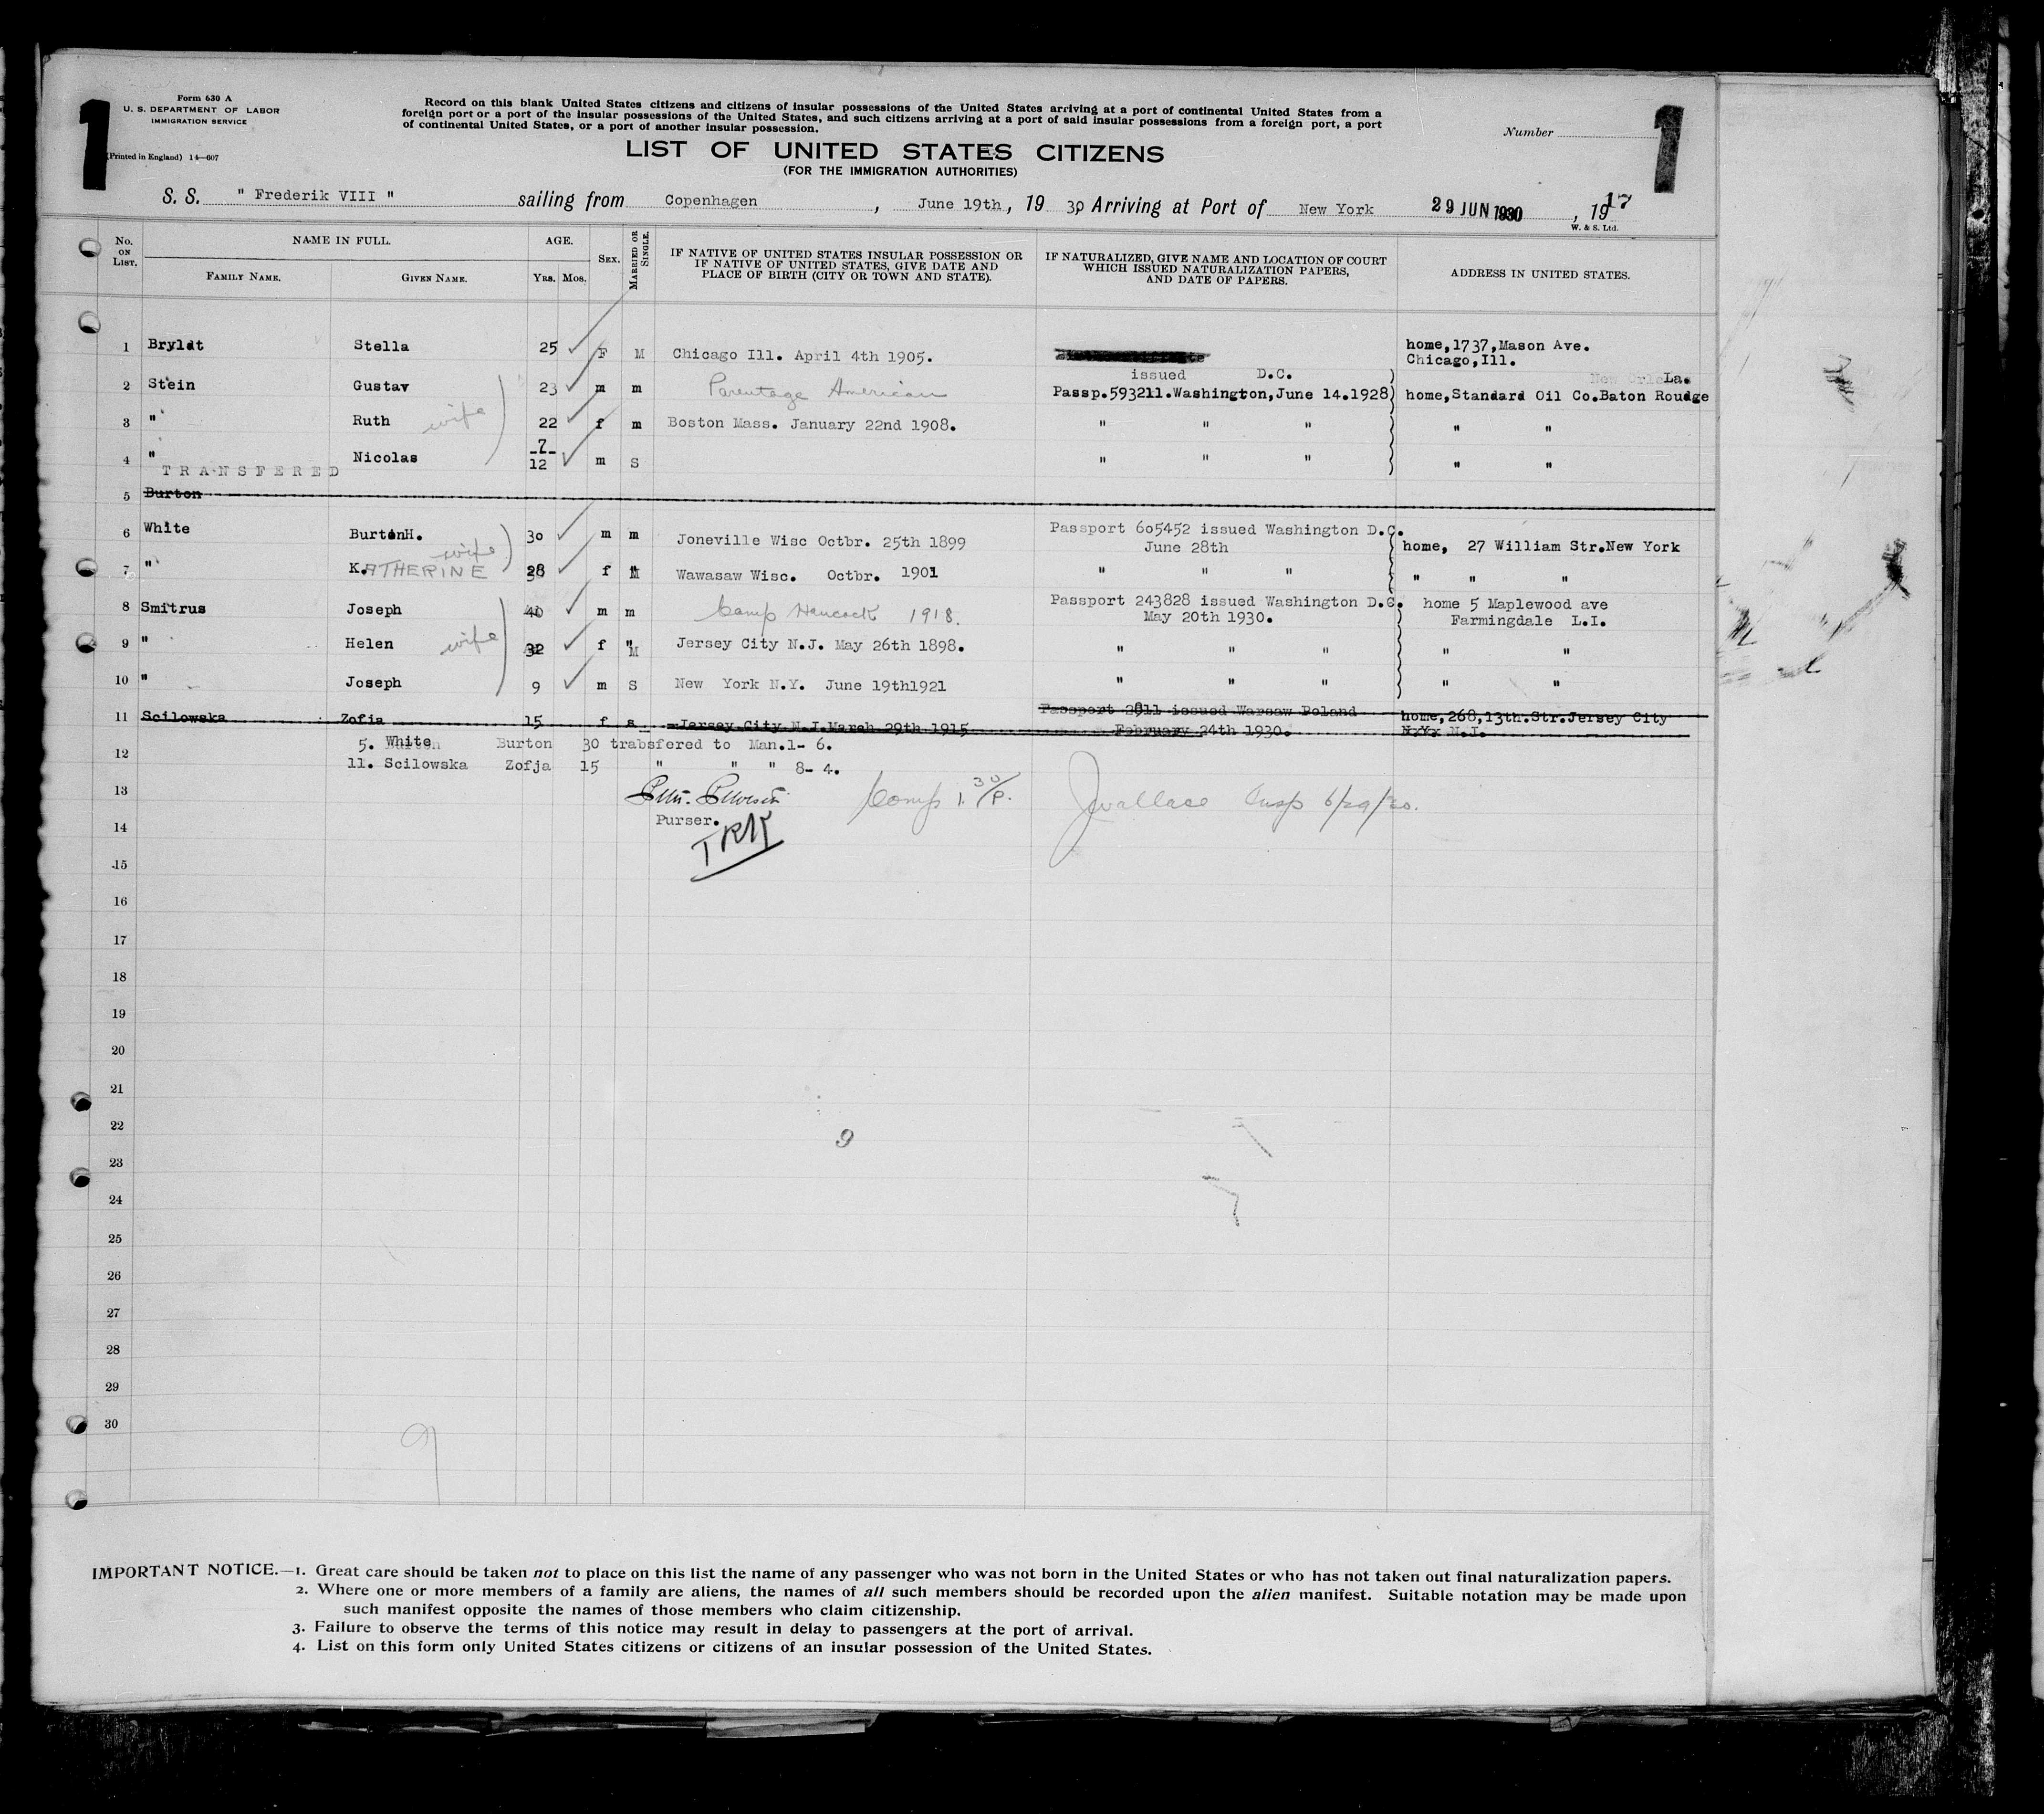 1
Form 630 A
U. S. DEPARTMENT OF LABOR
IMMIGRATION SERVICE
(Printed in England) 14—607
Record on this blank United States citizens and citizens of insular possessions of the United States arriving at a port of continental United States from a
foreign port or a port of the insular possessions of the United States, and such citizens arriving at a port of said insular possessions from a foreign port, a port
of continental United States, or a port of another insular possession.
Number
1
LIST OF UNITED STATES CITIZENS
(FOR THE IMMIGRATION AUTHORITIES)
S. S. " Frederik VIII " sailing from Copenhagen , June 19th, 19 30 Arriving at Port of New York 29 JUN 1930 , 1917
W. & S. Ltd.
No. ON LIST. NAME IN FULL. AGE. SEX. MARRIED OR SINGLE. IF NATIVE OF UNITED STATES INSULAR POSSESSION OR IF NATIVE OF UNITED STATES, GIVE DATE AND PLACE OF BIRTH (CITY OR TOWN AND STATE). IF NATURALIZED, GIVE NAME AND LOCATION OF COURT WHICH ISSUED NATURALIZATION PAPERS, AND DATE OF PAPERS. ADDRESS IN UNITED STATES.
FAMILY NAME. GIVEN NAME. YRS. MOS.
1 Bryldt Stella 25 F M Chicago Ill. April 4th 1905. home,1737,Mason Ave.
Chicago,Ill.
issued D.C. La.
2 Stein Gustav 23 m m Parentage American Passp.593211.Washington,June 14.1928) home,Standard Oil Co.Baton Roudge
3 " Ruth wife 22 f m Boston Mass. January 22nd 1908. " " " " "
4 " Nicolas -7- 12 m S " " " " "
TRANSFERED
5 Burton
6 White BurtonH. 30 m m Joneville Wisc Octbr. 25th 1899 Passport 605452 issued Washington D.C.
June 28th home, 27 William Str.New York
7 " K.ATHERINE wife 28 f M Wawasaw Wisc. Octbr. 1901 " " " " " "
8 Smitrus Joseph 40 m m Camp Hancock 1918. Passport 243828 issued Washington D.C. home 5 Maplewood ave
May 20th 1930. Farmingdale L.I.
9 " Helen wife 32 f " M Jersey City N.J. May 26th 1898. " " " " "
10 " Joseph 9 m S New York N.Y. June 19th1921 " " " " "
11 Scilowska Zofia 15 f s Jersey City N.J.March 29th 1915 Passport 2911 issued Warsaw Poland home,268,13th.Str.Jersey City
February 24th 1930. N.Y. N.J.
5. White Burton 30 trabsfered to Man.1- 6.
12
11. Scilowska Zofja 15 " " " 8- 4.
13 Comp 1.30/P. JWallace Insp 6/29/30.
Purser.
14
IRK
15
16
17
18
19
20
21
22
9
23
24
25
26
27
28
29
30
IMPORTANT NOTICE.—1. Great care should be taken not to place on this list the name of any passenger who was not born in the United States or who has not taken out final naturalization papers.
2. Where one or more members of a family are aliens, the names of all such members should be recorded upon the alien manifest. Suitable notation may be made upon
such manifest opposite the names of those members who claim citizenship.
3. Failure to observe the terms of this notice may result in delay to passengers at the port of arrival.
4. List on this form only United States citizens or citizens of an insular possession of the United States.